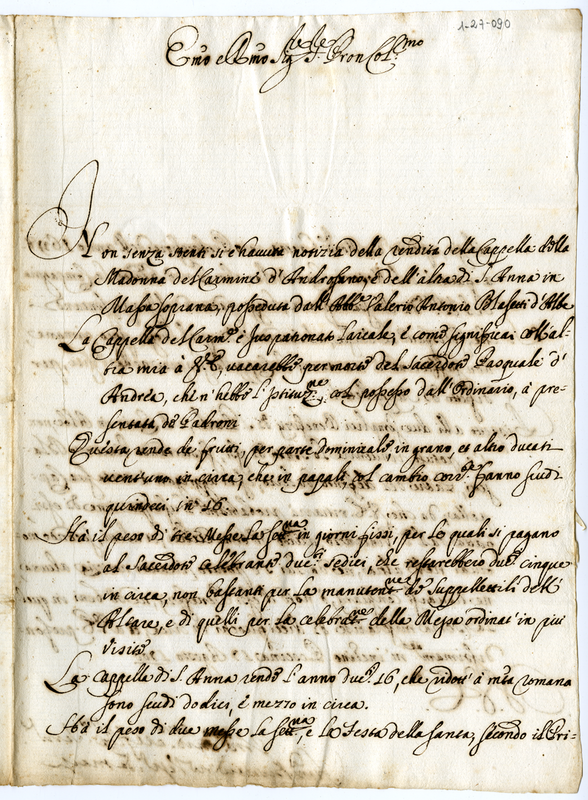 1-27-090
Emo e Rmo Sig.re P.ron Col.mo
Non senza stenti si è havuta notizia della rendita della Cappella della
Madonna del Carmine d'Androsano, e dell'altra di S. Anna in
Massa soprana, posseduta dall'Abb.e Valerio Antonio Blasetti d'Alba
La Cappella del Carm.e è Juspatronato Laicale, e come significai coll'al-
tra mia à V.E., vacarebbe per morte del sacerdote Pasquale d'
Andrea, che n'hebbe l'Istituz.ne col possesso dall'Ordinario, à pre-
sentata de Padroni
Questa rende de frutti, per parte dominicale, in grano, et altro ducati
vent'uno in circa, che in papali col cambio corr.e fanno scudi
quindeci in 16
Hà il peso di tre Messe la sett.na in giorni fissi, per le quali si pagano
al Sacerdote Celebrante duc.i sedici, che restarebbero duc.i cinque
in circa, non bastanti per la manutent.ne de suppellettili dell'
Altare, e di quelli per la celebrat.ne della Messa ordinat' in più
visite
La Cappella di S. Anna rende l'anno duc.i 16, che ridott' à m.ta romana
sono scudi dodici, e mezzo in circa.
Hà il peso di due messe la sett.na, e la Festa della santa, secondo il Pri-